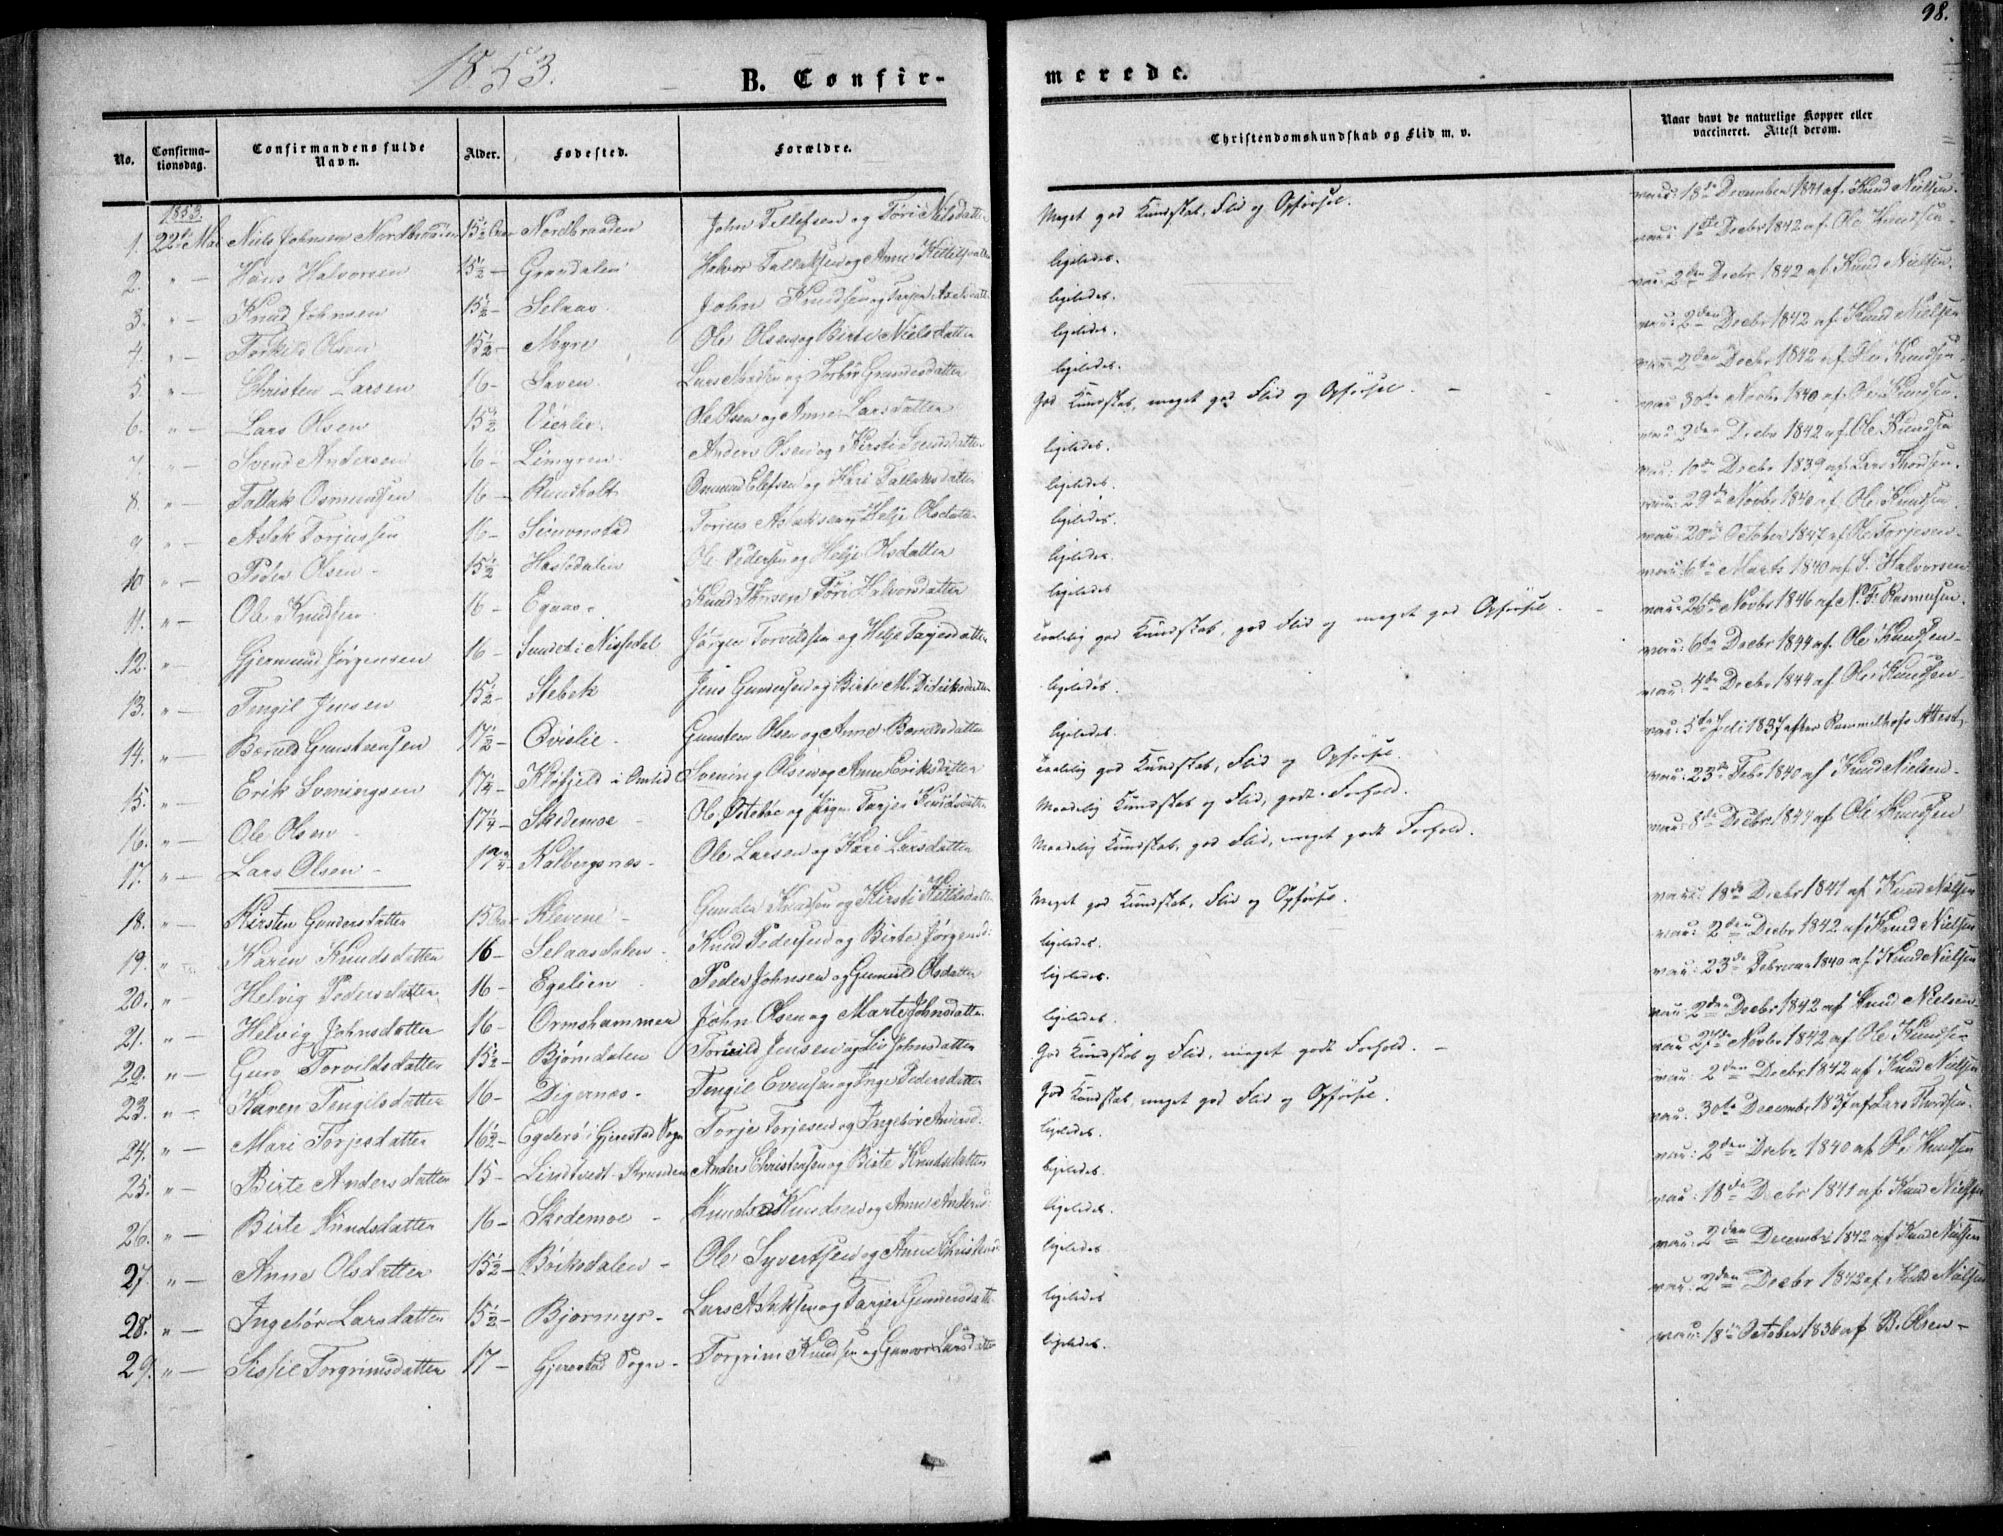 98.
1853.
B. Confir-
merede.
No.
Confirma-
tionsdag.
Confirmandens fulde
Navn.
Alder.
Fødested.
Forældre.
Christendomskundskab og Flid m. v.
Naar havt de naturlige Kopper eller
vaccineret. Attest derom.
1853.
1. 22de Mai Niels Johnsen Nordbraaden 15½ Aar Nordbraaden John Tellefsen og Töri Nielsdatter Meget god Kundskab, Flid og Opførsel. vac: 18de December 1841 af Knud Nielsen.
2. " — Hans Halvorsen 15½ — Grandalen Halvor Tallaksen og Anne Kittelsdatter ligeledes. vac: 1ste Decbr 1842 af Ole Knudsen.
3. " — Knud Johnsen 15½ — Selaas. John Knudsen og Tarjer Axelsdatter ligeledes. vac: 2den Decbr 1842 af Knud Nielsen.
4. " — Torkil Olsen 15½ — Myre Ole Olsen og Birte Nielsdatter ligeledes. vac: 2den Decbr 1842 af Knud Nielsen
5. " — Christen Larsen 16 — Saven. Lars og Torbör Gundersdatter ligeledes. vac: 2den Decbr 1842 af Ole Knudsen.
6. " — Lars Olsen 15½ Vierlie. Ole Olsen og Anne Larsdatter God Kundskab, meget god Flid og Opførsel. — vac: 30te Novbr 1840 af Ole Knudsen.
7 " — Svend Andersen 16 — Limyren. Anders Olsen og Kirsti Svendsdatter ligeledes. vac: 2den Decbr 1842 af Ole Knudsen
8. " — Tallak Osmundsen 16 — Rundholt Osmund Olefsen og Kari Tallaksdatter ligeledes. vac: 10de Decbr 1839 af Lars Thordsen.
9 " — Aslak Torjussen 16 — Simonstad Torjus Aslaksen og Helje Olsdatter ligeledes. vac: 29de Novbr 1840 af Ole Knudsen.
10 " — Peder Olsen — 15½ Hasødalen Ole Pedersen og Helje Olsdatter ligeledes vac: 20de October 1847 af Ole Torjesen.
11. " — Ole Knudsen 16 — Egaas. Knud Töri Halvorsdatter ligeledes vac: 6te Marts 1840 af S. Halvorsen
12. " — Gjermund Jørgensen 16 — Sundet i Nissedal Jørgen Torvildsen og Helje Tarjesdatter Temlelig god Kundskab, god Flid og meget god Opførsel. — vac: 26de Novbr 1846 af N. F. Rasmusen.
13. " — Tengil Jensen 15½ — Stebek Jens Gundersen og Birte M. Didriksdatter ligeledes. vac: 6te Decbr 1844 af Ole Knudsen —
14. " — Berulf Gunstensen 17½ — Qvislie. Gunsten Olsen og Anne Berulfsdatter ligeledes. vac: 4de Decbr 1844 af Ole Knudsen —
15. " — Erik Sveningsen 17¼ — Klöfjeld i Omlid Svening Olsen og Anne Eriksdatter god Kundskab, Flid og Opførsel. vac: 5te Juli 1837 efter Attest,
16. " — Ole Olsen — 17¼ — Skedemoe — Ol. Østebøe og Tarjer Knudsdatter Maadelig Kundskab og Flid, godt Forhold. vac: 23de Febr 1840 af Knud Nielsen —
17. " — Lars Olsen — 17¾ — Kalbergsnæs — Ole Larsen og Kari Larsdatter Maadelig Kundskab, god Flid, meget godt Forhold. vac: 8de Decbr 1844 af Ole Knudsen
18. " — Kirsten Gundersdatter 15 Aar Klevene — Gunder Knudsen og Kirsti Kittilsdatter Meget god Kundskab, Flid og Opførsel. vac: 18de Decbr 1841 af Knud Nielsen
19. " — Karen Knudsdatter 16 — Selaasdalen. Knud Pedersen og Birte Jørgensd: ligeledes. vac: 2den Decbr 1842 af Knud Nielsen
20. " — Helvig Pedersdatter. 16 — Egelien Peder Johnsen og Gunuld Olsdatter ligeledes. vac: 23de Februar 1840 af Knud Nielsen
21. " — Helvig Johnsdatter 16 — Ormshammer John Olsen og Marte Johnsdatter ligeledes. vac: 2den Decbr 1842 af Knud Nielsen
22. " — Guro Torvildsdatter 15½ — Bjørndalen Torvild Jensen og Liv Johnsdatter God Kundskab og Flid, meget godt Forhold. — vac: 27de Novbr 1842 af Ole Knudsen
23. " — Karen Tengilsdatter 16 — Digernæs. Tengil Evensen og Inge Pedersdatter God Kundskab, meget god Flid og Opførsel. vac: 2den Decbr 1842 af Knud Nielsen
24. " — Mari Torjesdatter 16½ — Egderö i Gjerestad Sogn Torje Torjesen og Ingebör Amundsd. ligeledes. vac: 30te Decembr 1837 af Lars Thordsen.
25. " — Birte Andersdatter 15 — Lindtvedt Stranden Anders Christensen og Birte Knudsdatter ligeledes. vac: 2den Decbr 1840 af Ole Knudsen
26. " — Birte Knudsdatter 16 — Skedemoe — Knud Knudsen og Anne Andersd: ligeledes. vac: 18de Decbr 1841 af Knud Nielsen
27. " — Anne Olsdatter 15½ — Böiksdalen — Ole Syvertsen og Anne Christensd: ligeledes vac: 2den Decembr 1842 af Knud Nielsen
28. " — Ingebör Larsdatter 15½ — Bjormyr — Lars Aslaksen og Tarjer Gundersdatter ligeledes vac: 2den Decbr 1842 af Knud Nielsen
29. " — Sislie Torgrimsdatter 17 — Gjerestad Sogn — Torgrim Knudsen og Gunvor Larsdatter ligeledes. vac: 18de October 1836 af B. Olsen —